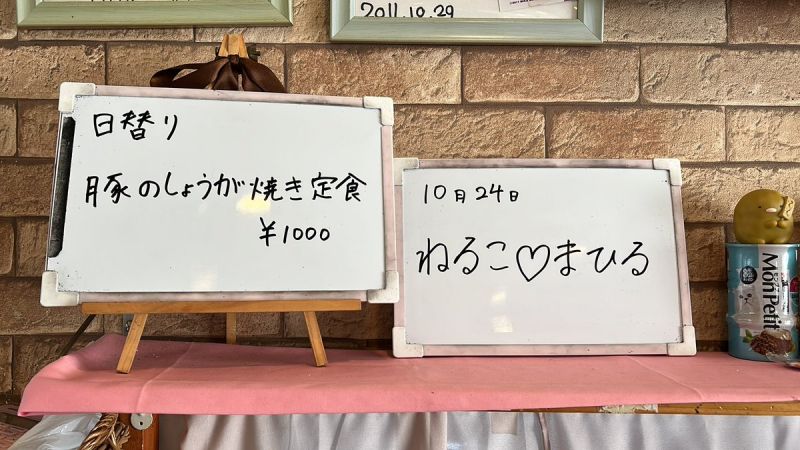 2011.10.29
日替り
豚のしょうが焼き定食
¥1000
10月24日
ねるこ♡まひる
MonPetit